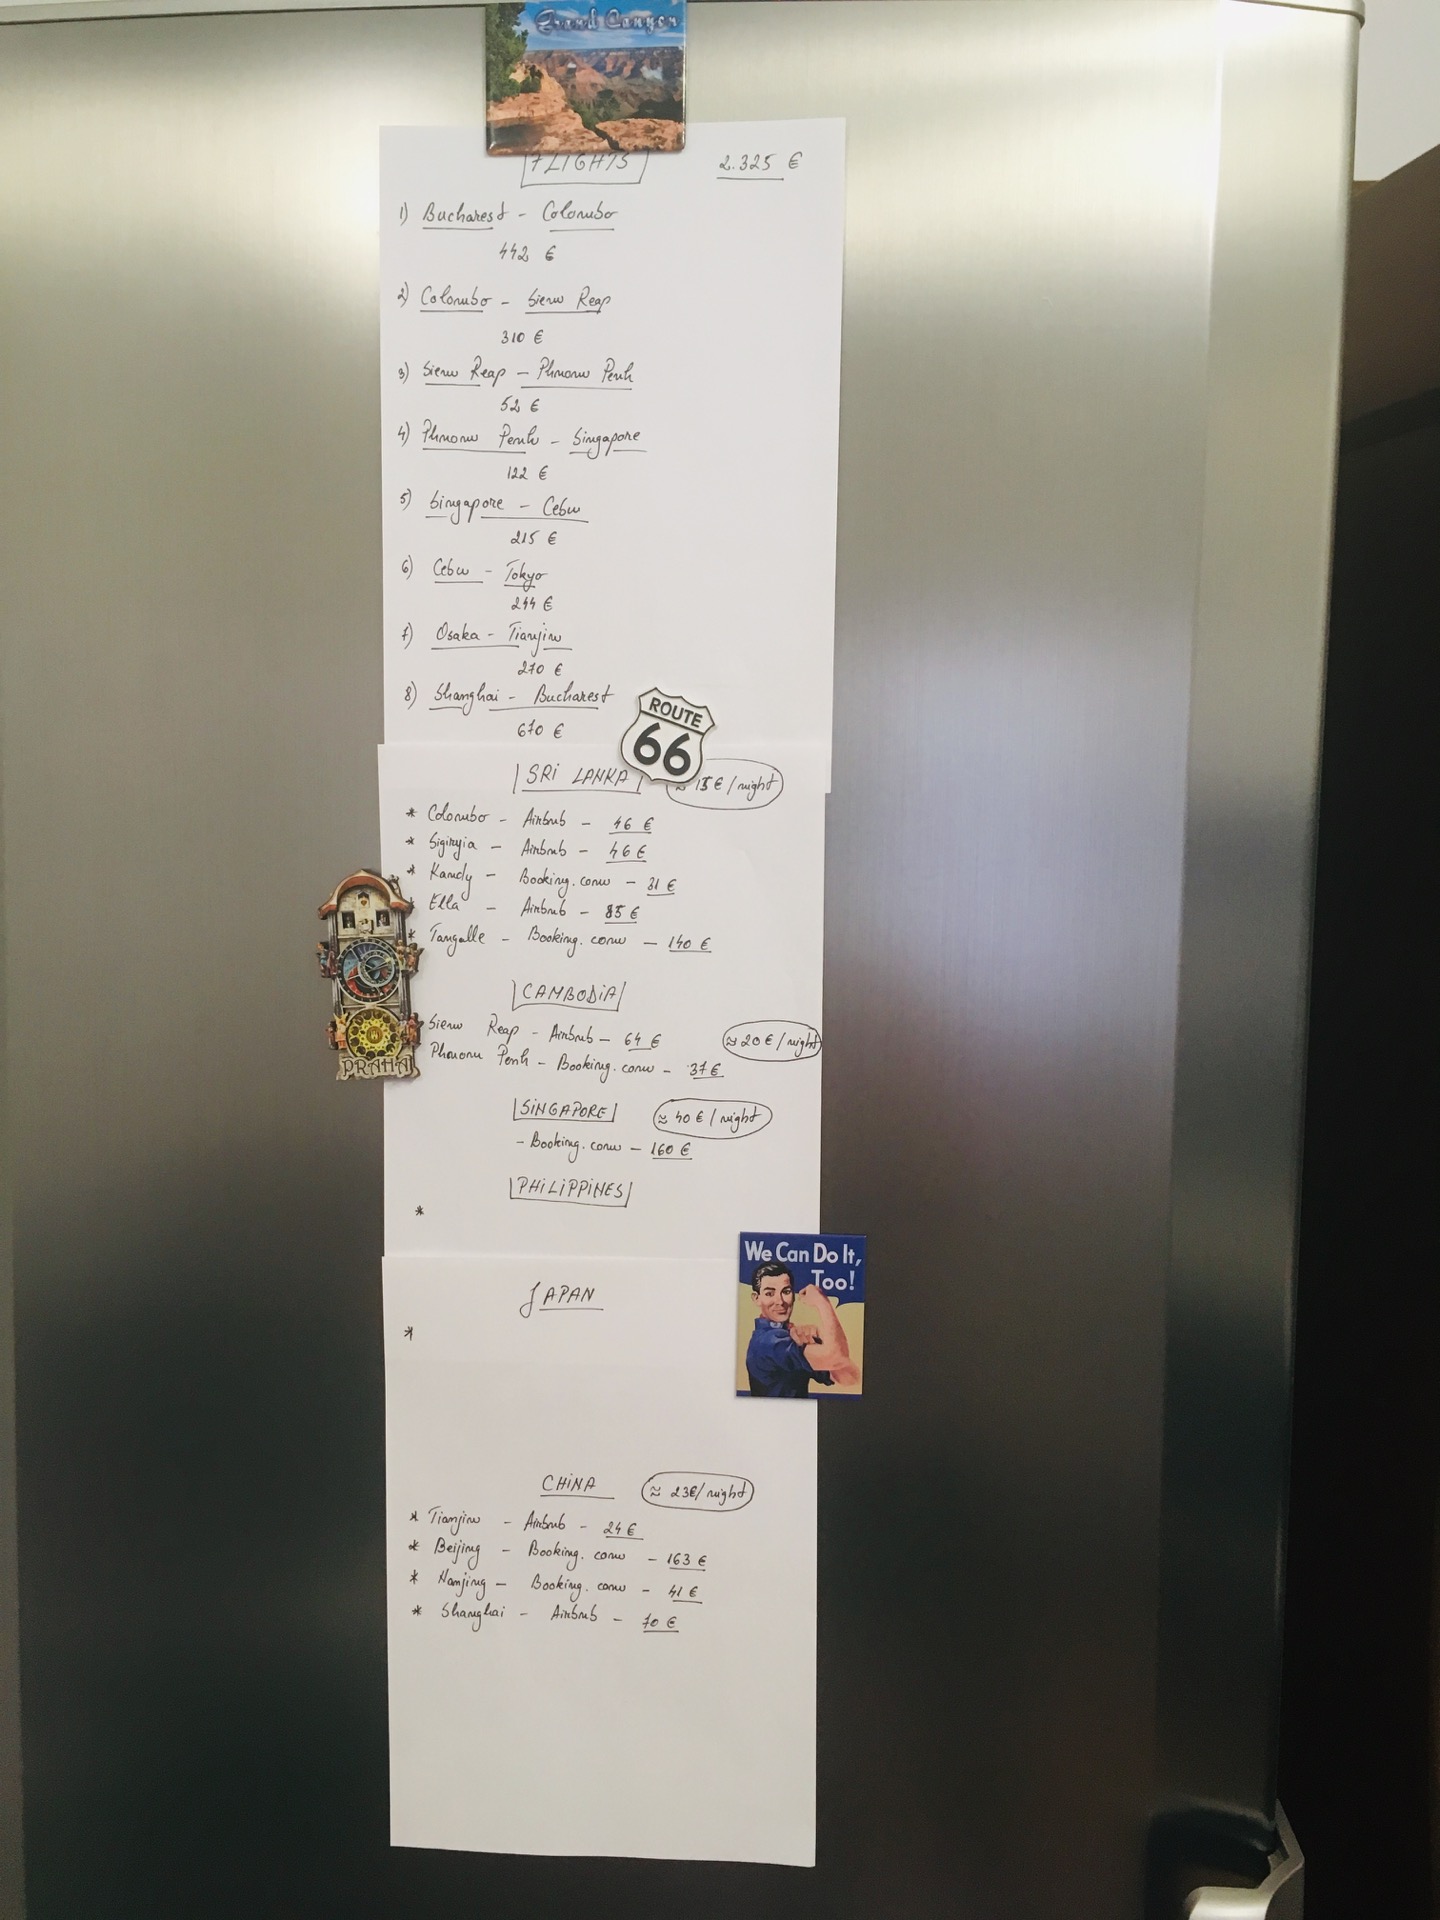 Grand Canyon
FLIGHTS 2.325 €
1) Bucharest - Colombo
442 €
2) Colombo - Siem Reap
310 €
3) Siem Reap - Phnom Penh
52 €
4) Phnom Penh - Singapore
122 €
5) Singapore - Cebu
215 €
6) Cebu - Tokyo
244 €
7) Osaka - Tianjin
270 €
8) Shanghai - Bucharest
670 €
ROUTE
66
SRI LANKA ≈ 15 € / night
* Colombo - Airbnb - 46 €
* Sigiryia - Airbnb - 46 €
* Kandy - Booking.com - 31 €
* Ella - Airbnb - 85 €
* Tangalle - Booking.com - 140 €
CAMBODiA
Siem Reap - Airbnb - 64 € ≈ 20 € / night
Phnom Penh - Booking.com - 37 €
PRAHA
SiNGAPORE ≈ 40 € / night
- Booking.com - 160 €
PHiLiPPiNES
*
We Can Do It,
Too!
JAPAN
*
CHiNA ≈ 23€/night
* Tianjin - Airbnb - 24 €
* Beijing - Booking.com - 163 €
* Nanjing - Booking.com - 41 €
* Shanghai - Airbnb - 70 €